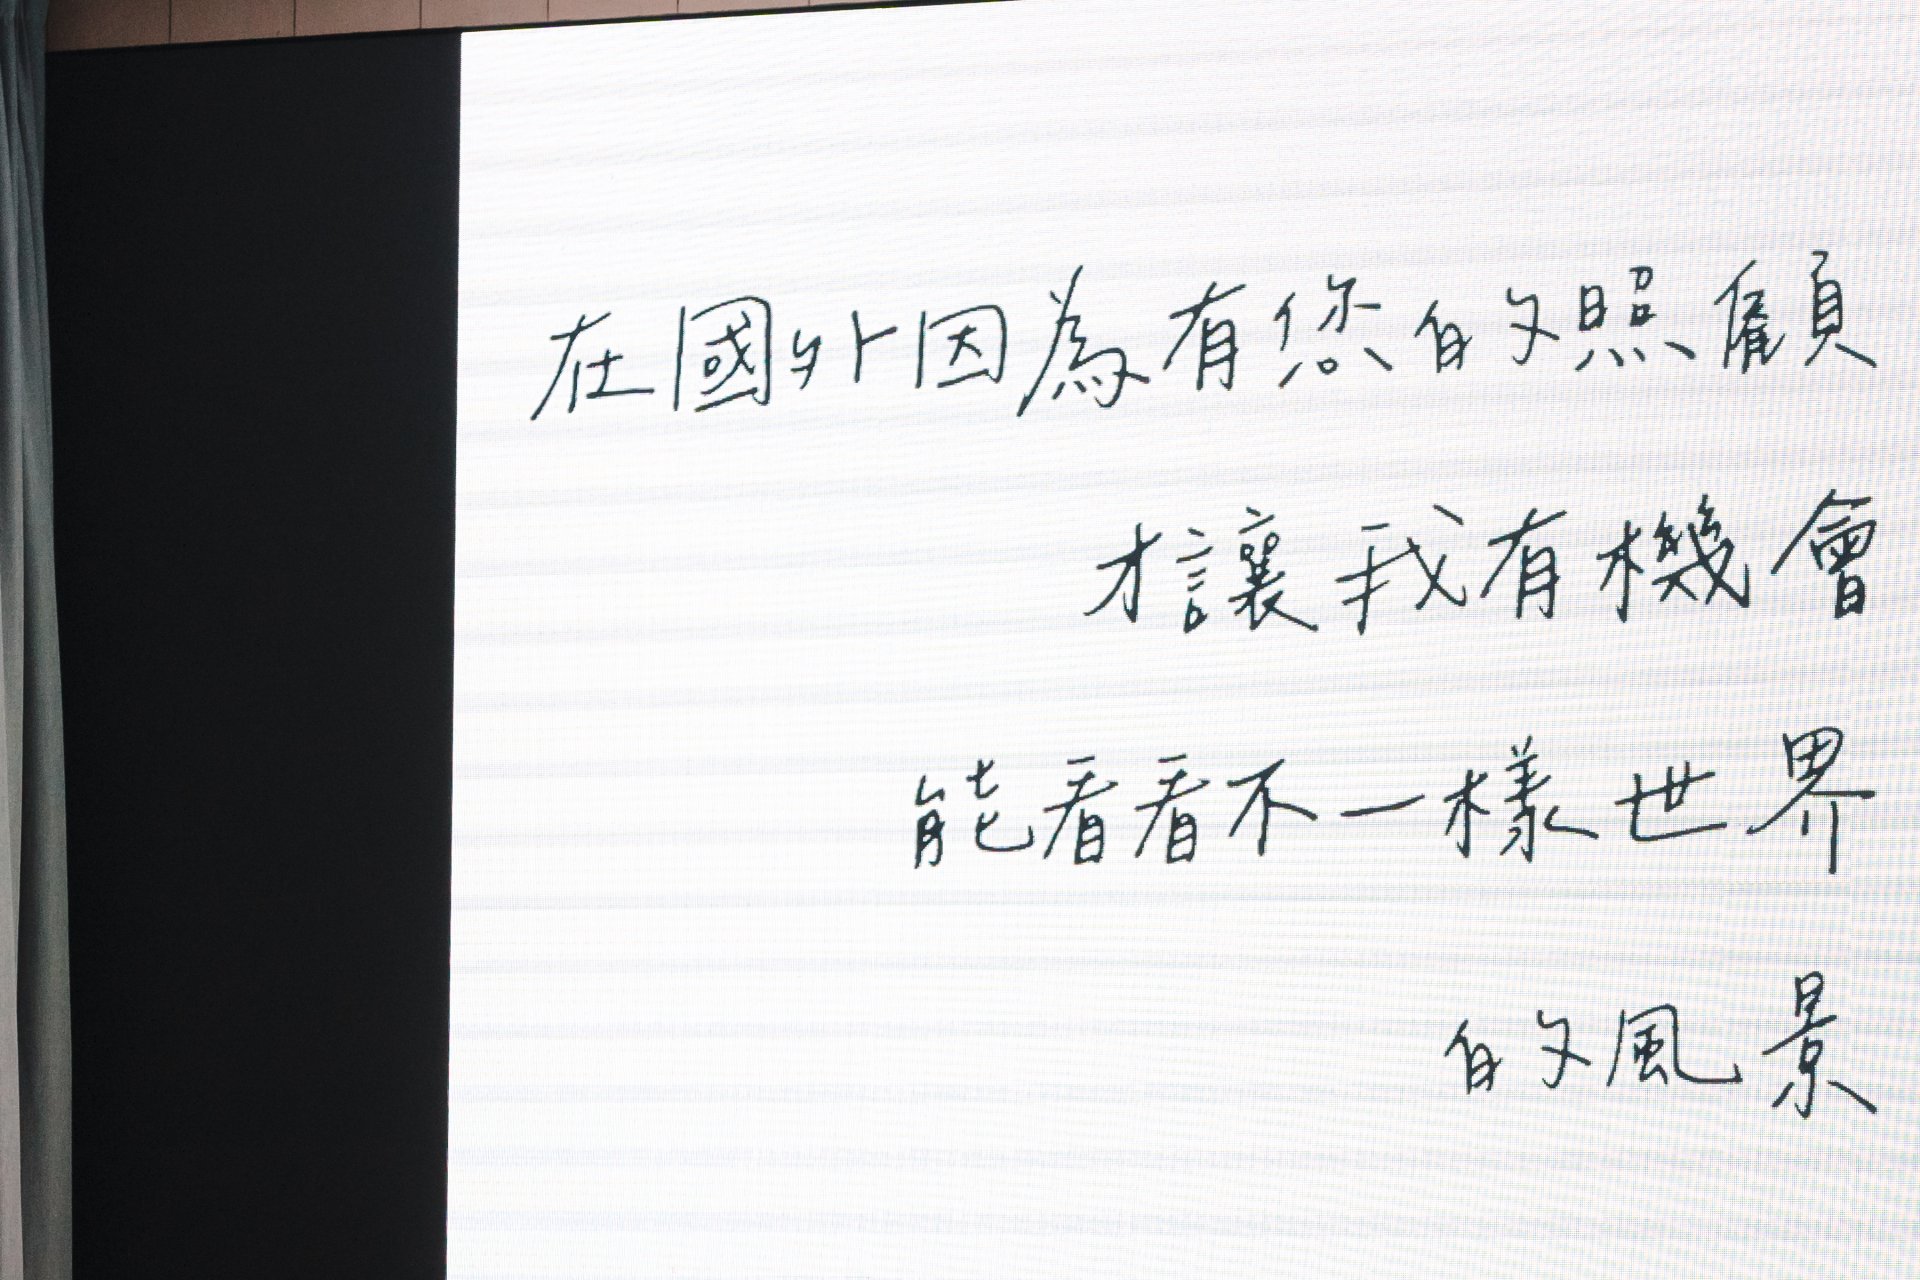 在國外因為有您的照顧
才讓我有機會
能看看不一樣世界
的風景